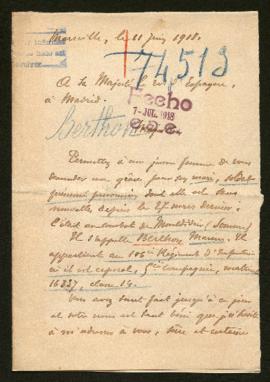 Marseille, le 11 juin 1918.
74,513
A Sa Majesté le Roi d'Espagne,
à Madrid.
Hecho
7-JUL. 1918
Berthon
Permettez à une jeune femme de vous
demander une grâce pour son mari, soldat
présumé prisonnier dont elle est sans
nouvelles depuis le 27 mars dernier :
il était au combat de Montdidier (Somme)
Il s'appelle Berthon Marius, Il
appartient au 105e Régiment d'Infanterie
où il est caporal, 5e Compagnie, matricule
16237, classe 14.
Vous avez tant fait jusqu'à ce jour
et votre nom est tant béni que j'ai
à m'adresser à vous, Sire et certaine